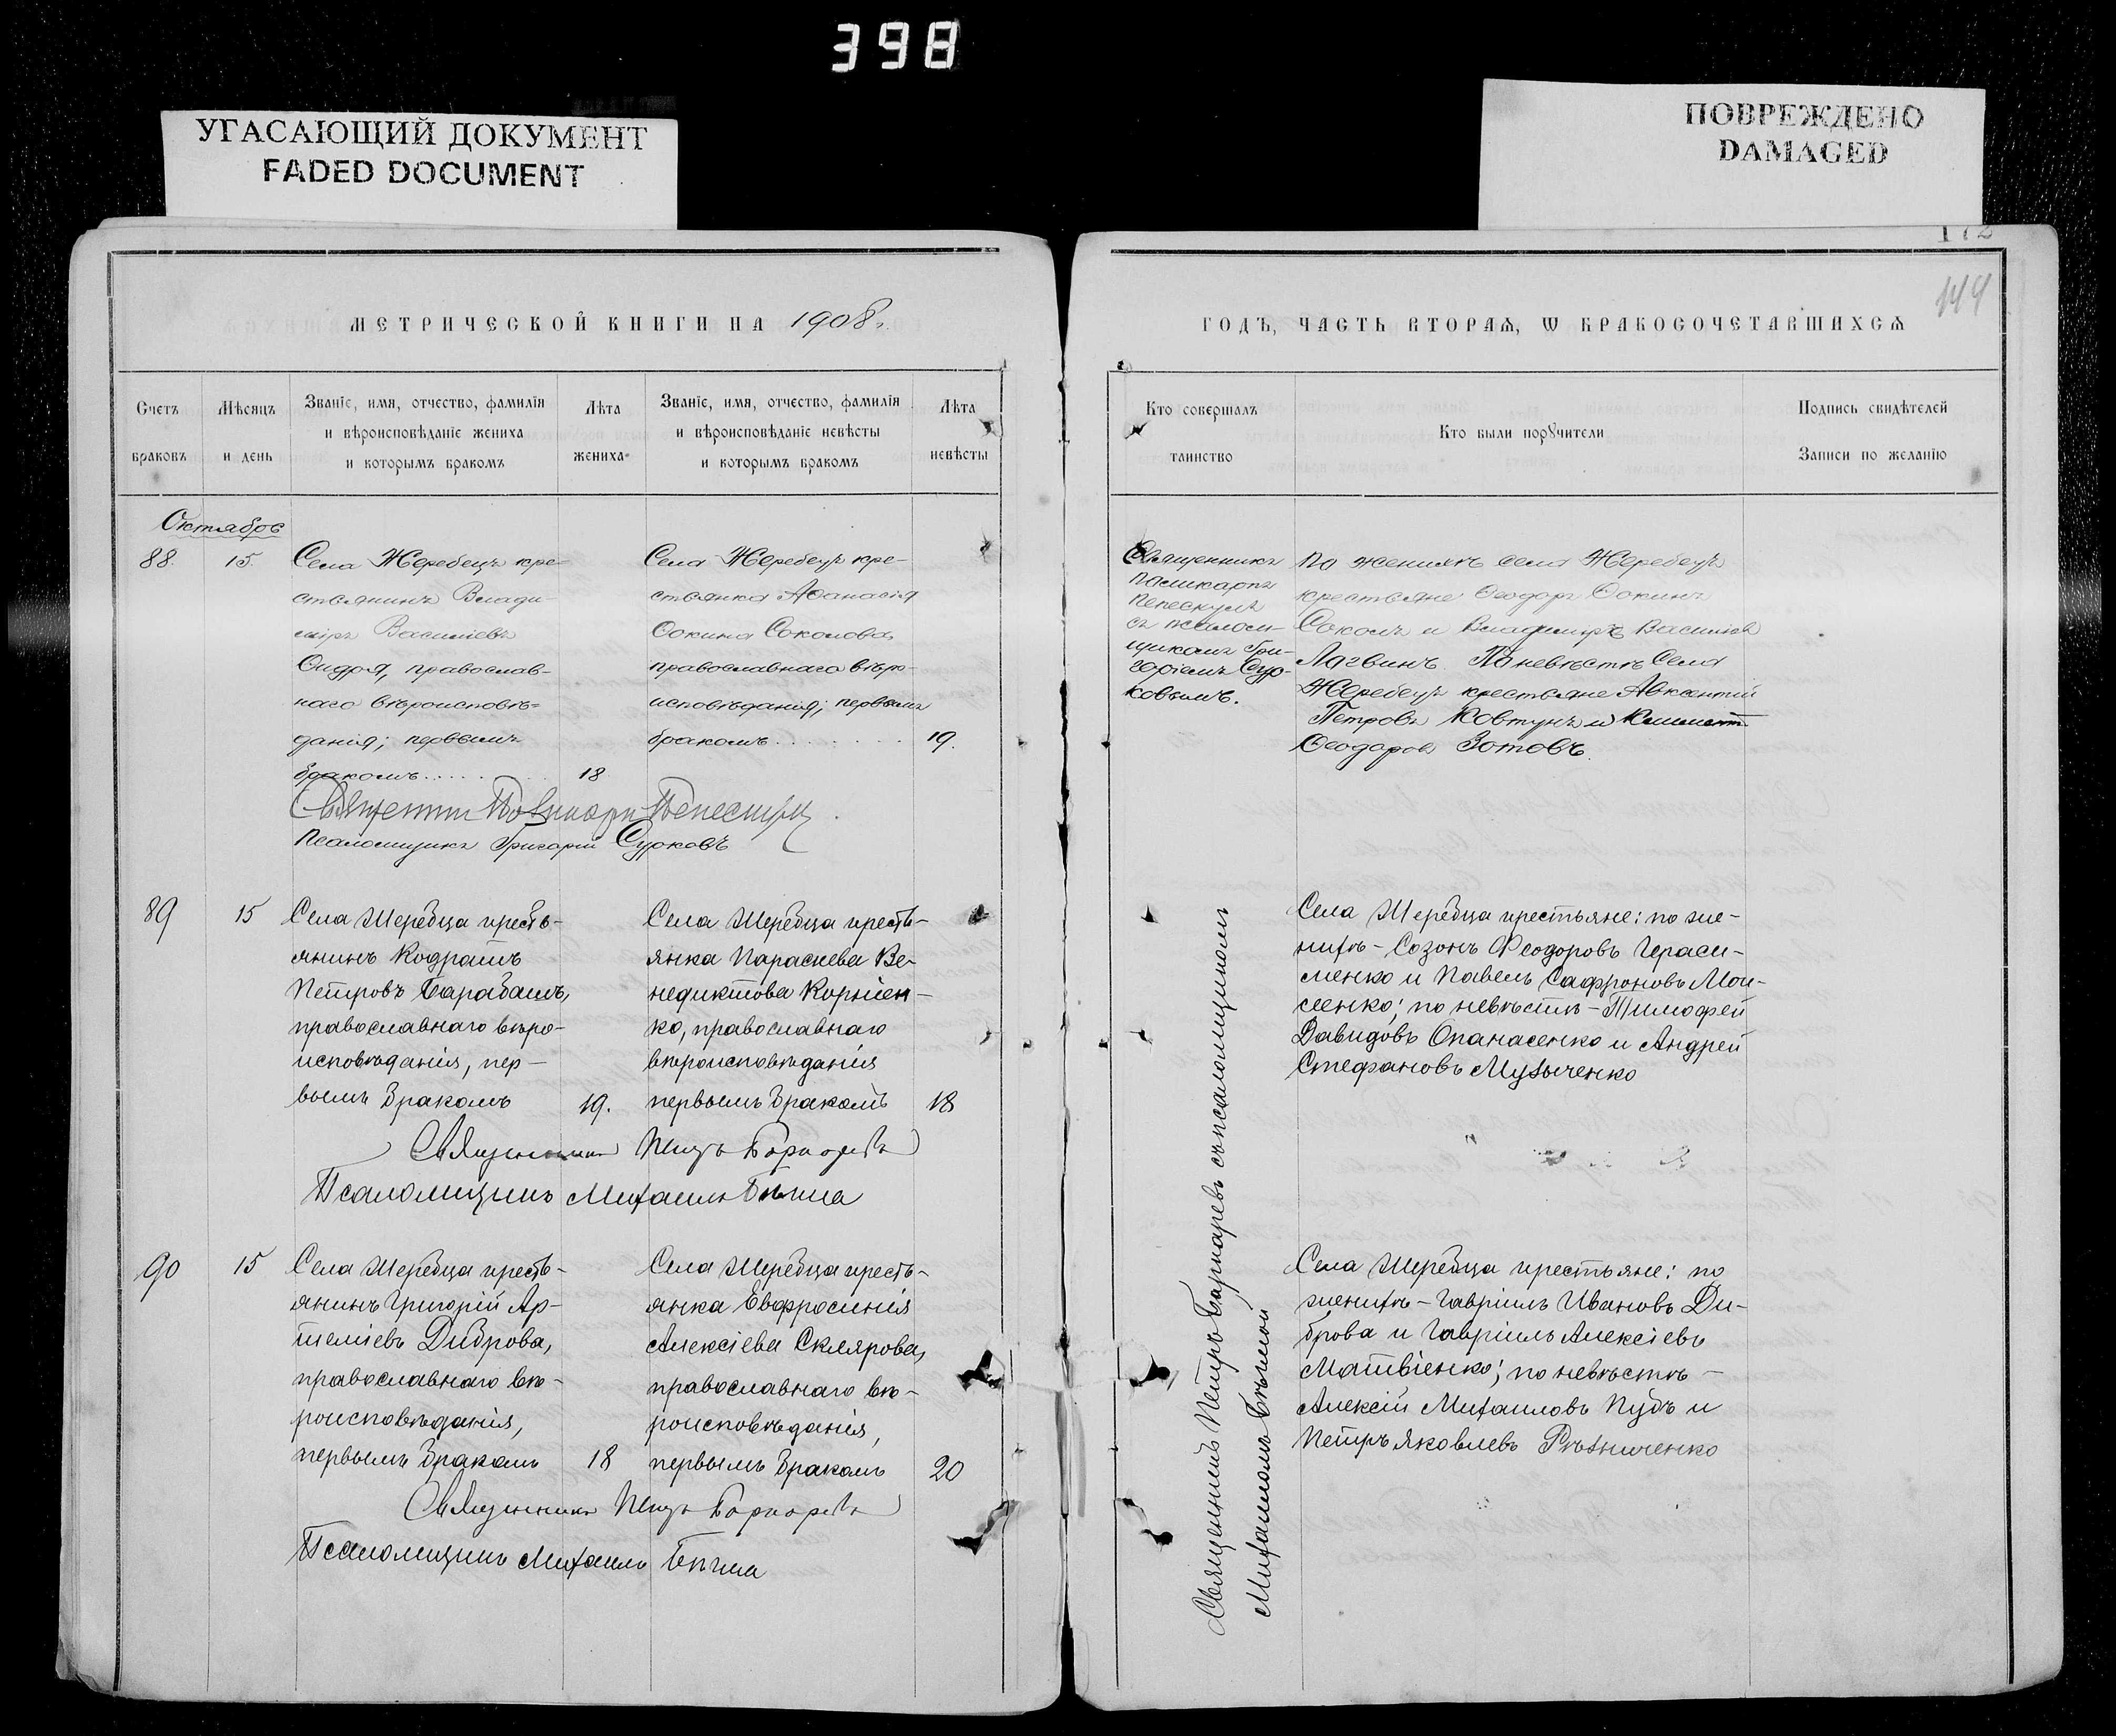 398
УГАСАЮЩИЙ ДОКУМЕНТ
FADED DOCUMENT
ПОВРЕЖДЕНО
DAMAGED
172
144
МЕТРИЧЕСКОЙ КНИГИ НА 1908 г.
Счетъ браковъ
Мѣсяцъ и день
Званіе, имя, отчество, фамилія
и вѣроисповѣданіе жениха
и которымъ бракомъ
Лѣта жениха
Званіе, имя, отчество, фамилія
и вѣроисповѣданіе невѣсты
и которымъ бракомъ
Лѣта невѣсты
Октябрь
88. 15.
Села Жеребецъ кре-
стьянинъ Влади-
міръ Василіевъ
православ-
наго вѣроисповѣ-
данія; первымъ
бракомъ . . . . . 18
Села Жеребецъ кре-
стьянка Аѳанасія
Ѳокина Соколова,
православнаго вѣро-
исповѣданія; первымъ
бракомъ . . . . . . . 19.
Псаломщикъ Григорій Сурковъ
89 15
Села Жеребца кресть-
янинъ Кодратъ
Петровъ Барабашъ,
православнаго вѣро-
исповѣданія, пер-
вымъ бракомъ 19.
Села Жеребца кресть-
янка Параскева Ве-
недиктова Корніен-
ко, православнаго
вѣроисповѣданія
первымъ бракомъ 18
Священникъ Петръ Боркаревъ
Псаломщикъ Михаилъ Бѣлма
90 15
Села Жеребца кресть-
янинъ Григорій Ар-
теміевъ Диброва,
православнаго вѣ-
роисповѣданія,
первымъ бракомъ 18
Села Жеребца кресть-
янка Евфросинія
Алексіева Склярова,
православнаго вѣ-
роисповѣданія,
первымъ бракомъ 20
Священникъ Петръ Боркаревъ
Псаломщикъ Михаилъ
ГОДЪ, ЧАСТЬ ВТОРАѦ, Ѡ БРАКОСОЧЕТАВШИХСѦ
Кто совершалъ
таинство
Кто были порꙋчители
Подпись свидѣтелей
Записи по желанію
Священникъ
Поликарпъ
съ псалом-
щикомъ Гри-
горіемъ Сур-
ковымъ.
По женихѣ села Жеребецъ
крестьяне Ѳеодоръ Ѳокинъ
Соколъ и Владиміръ Василіевъ
Логвинъ. По невѣстѣ Села
Жеребецъ крестьяне Авксентій
Петровъ Ковтунъ и Климентъ
Ѳеодоровъ Зотовъ.
Священникъ Петръ съ псаломщикомъ
Михаиломъ
Села Жеребца крестьяне: по же-
нихѣ - Созонъ Ѳеодоровъ Гераси-
менко и Павелъ Сафроновъ Мои-
сеенко; по невѣстѣ - Тимофей
Давидовъ Опанасенко и Андрей
Стефановъ Музыченко
Села Жеребца крестьяне: по
женихѣ - Гавріилъ Ивановъ Ди-
брова и Гавріилъ Алексіевъ
Матвіенко; по невѣстѣ -
Алексій Михаиловъ Пудъ и
Петръ Яковлевъ Рѣзниченко